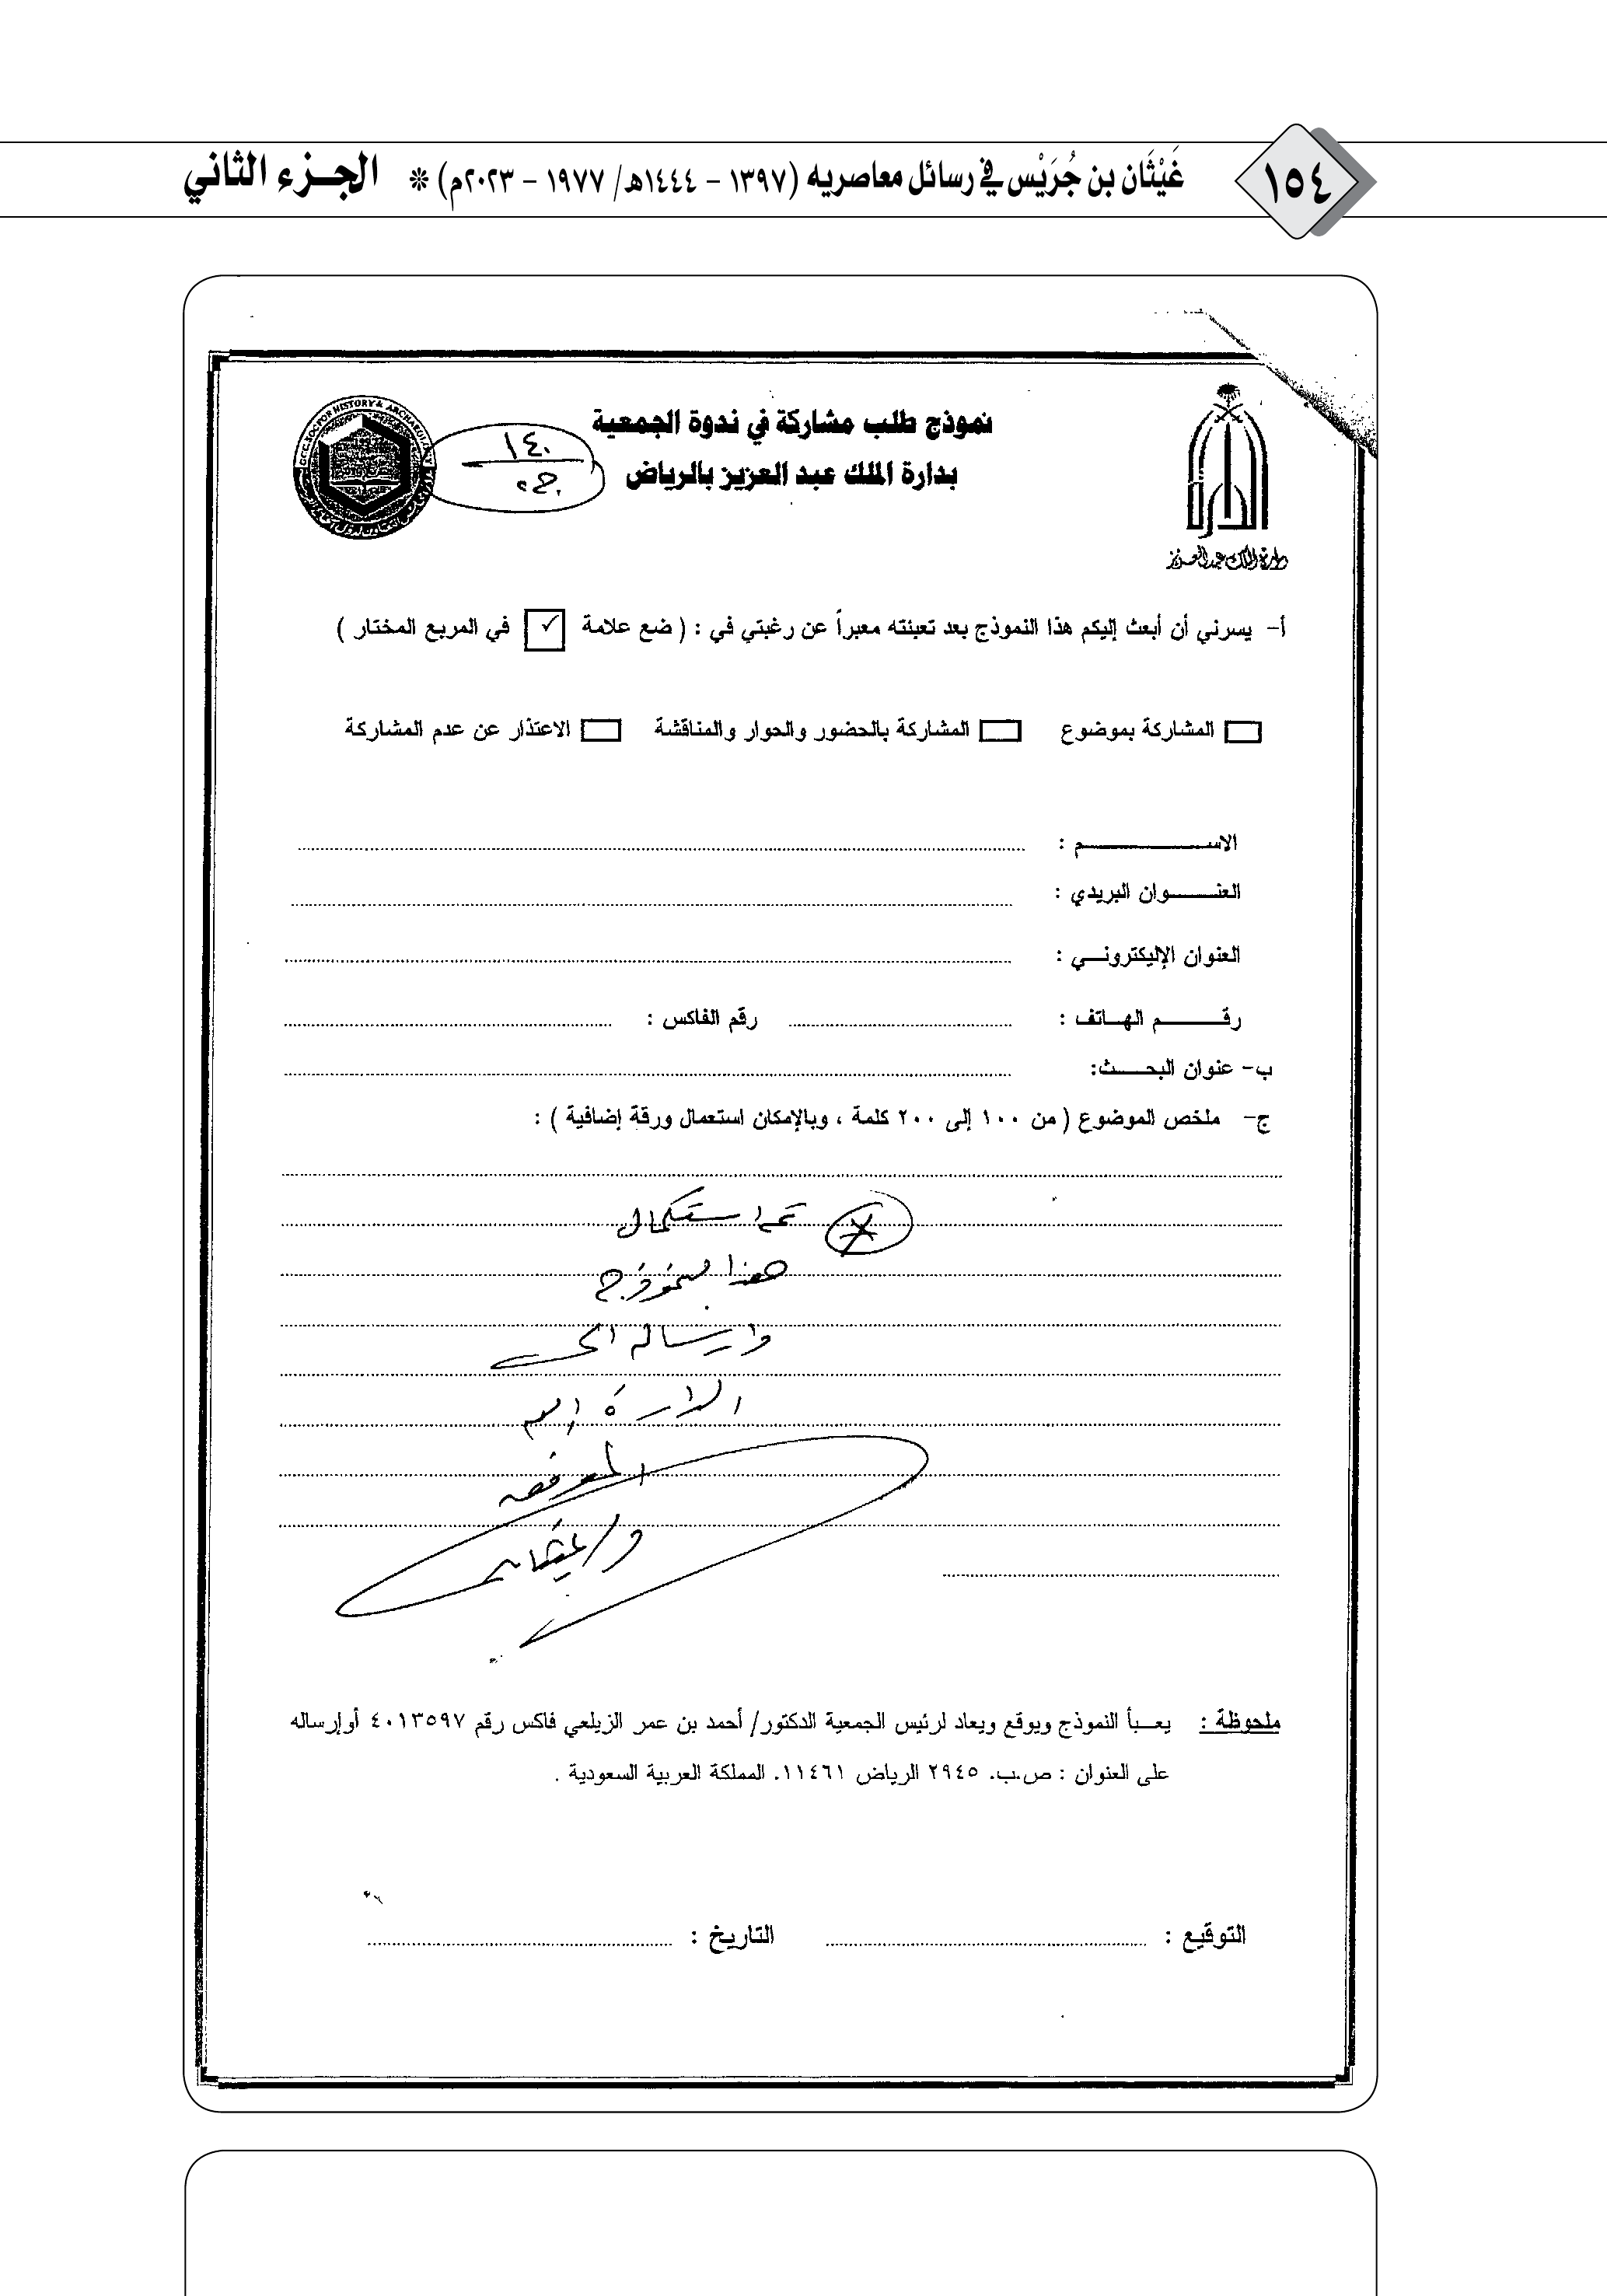 ١٥٤
غَيْثَان بن جُرَيْس في رسائل معاصريه (١٣٩٧ - ١٤٤٤هـ/ ١٩٧٧ - ٢٠٢٣م) * الجزء الثاني
نموذج طلب مشاركة في ندوة الجمعية
بدارة الملك عبد العزيز بالرياض
١٤٠
ج
GCC SOC FOR HISTORY & ARCHAEOLOGY
الدارة
دارة الملك عبدالعزيز
أ- يسرني أن أبعث إليكم هذا النموذج بعد تعبئته معبراً عن رغبتي في : ( ضع علامة ✓ في المربع المختار )
المشاركة بموضوع المشاركة بالحضور والحوار والمناقشة الاعتذار عن عدم المشاركة
الاسم :
العنوان البريدي :
العنوان الإليكتروني :
رقم الهاتف : رقم الفاكس :
ب- عنوان البحث:
ج- ملخص الموضوع ( من ١٠٠ إلى ٢٠٠ كلمة ، وبالإمكان استعمال ورقة إضافية ) :
تم استكمال
هذا النموذج
وارساله الى
الدارة
د/ غيثان
ملحوظة : يعبأ النموذج ويوقع ويعاد لرئيس الجمعية الدكتور/ أحمد بن عمر الزيلعي فاكس رقم ٤٠١٣٥٩٧ أوإرساله
على العنوان : ص.ب. ٢٩٤٥ الرياض ١١٤٦١. المملكة العربية السعودية .
التوقيع : التاريخ :